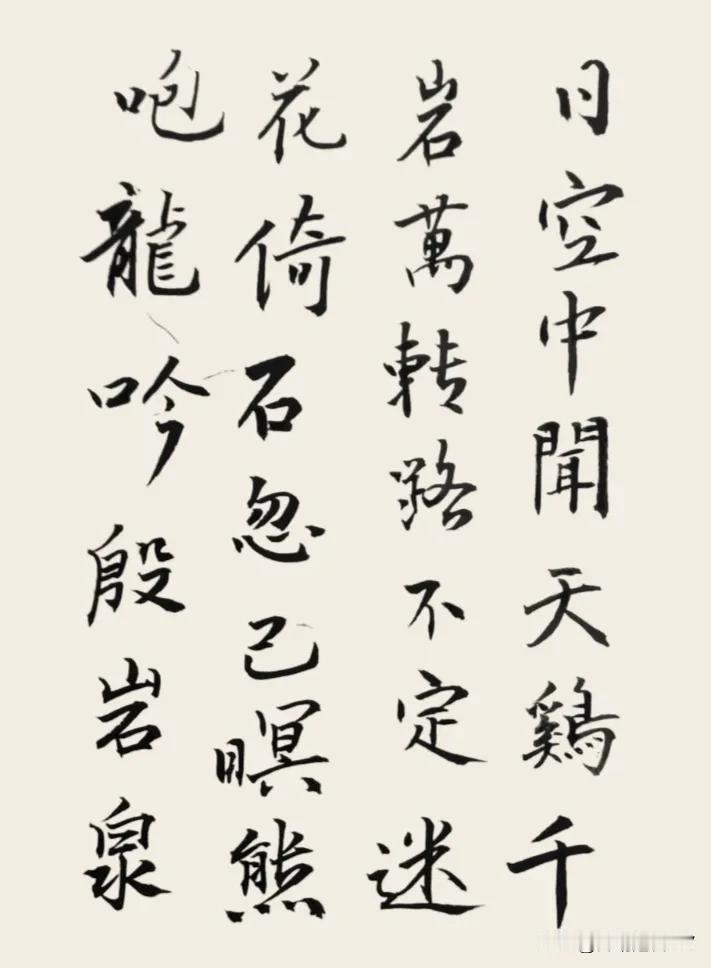 日空中聞天鷄千
岩萬轉路不定迷
花倚石忽已暝熊
咆龍吟殷岩泉